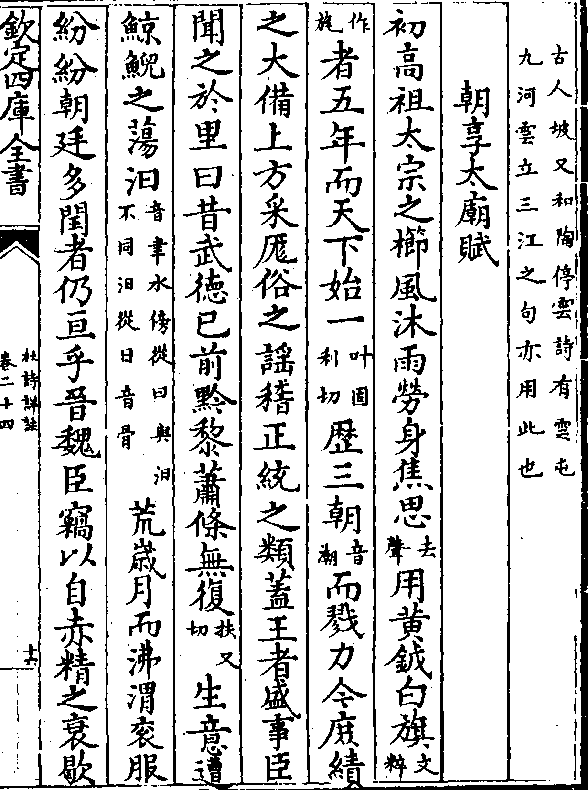 古人坡又和陶停雲詩有雲屯
九河雲立三江之句亦用此也
朝享太廟賦
初高祖太宗之櫛風沐雨勞身焦思去聲用黄鉞白旗文粹
作旄者五年而天下始一叶固利切歴三朝音潮而戮力今庶績
之大備上方采厖俗之謡稽正統之類蓋王者盛事臣
聞之於里曰昔武德已前黔黎蕭條無復扶又切生意遭
鯨鯢之蕩汩音聿水傍從曰與汨不同汨從日音骨荒歳月而沸渭衮服
紛紛朝廷多閏者仍亘乎晉魏臣竊以自赤精之衰歇
欽定四庫全書
杜詩詳註
卷二十四
十六